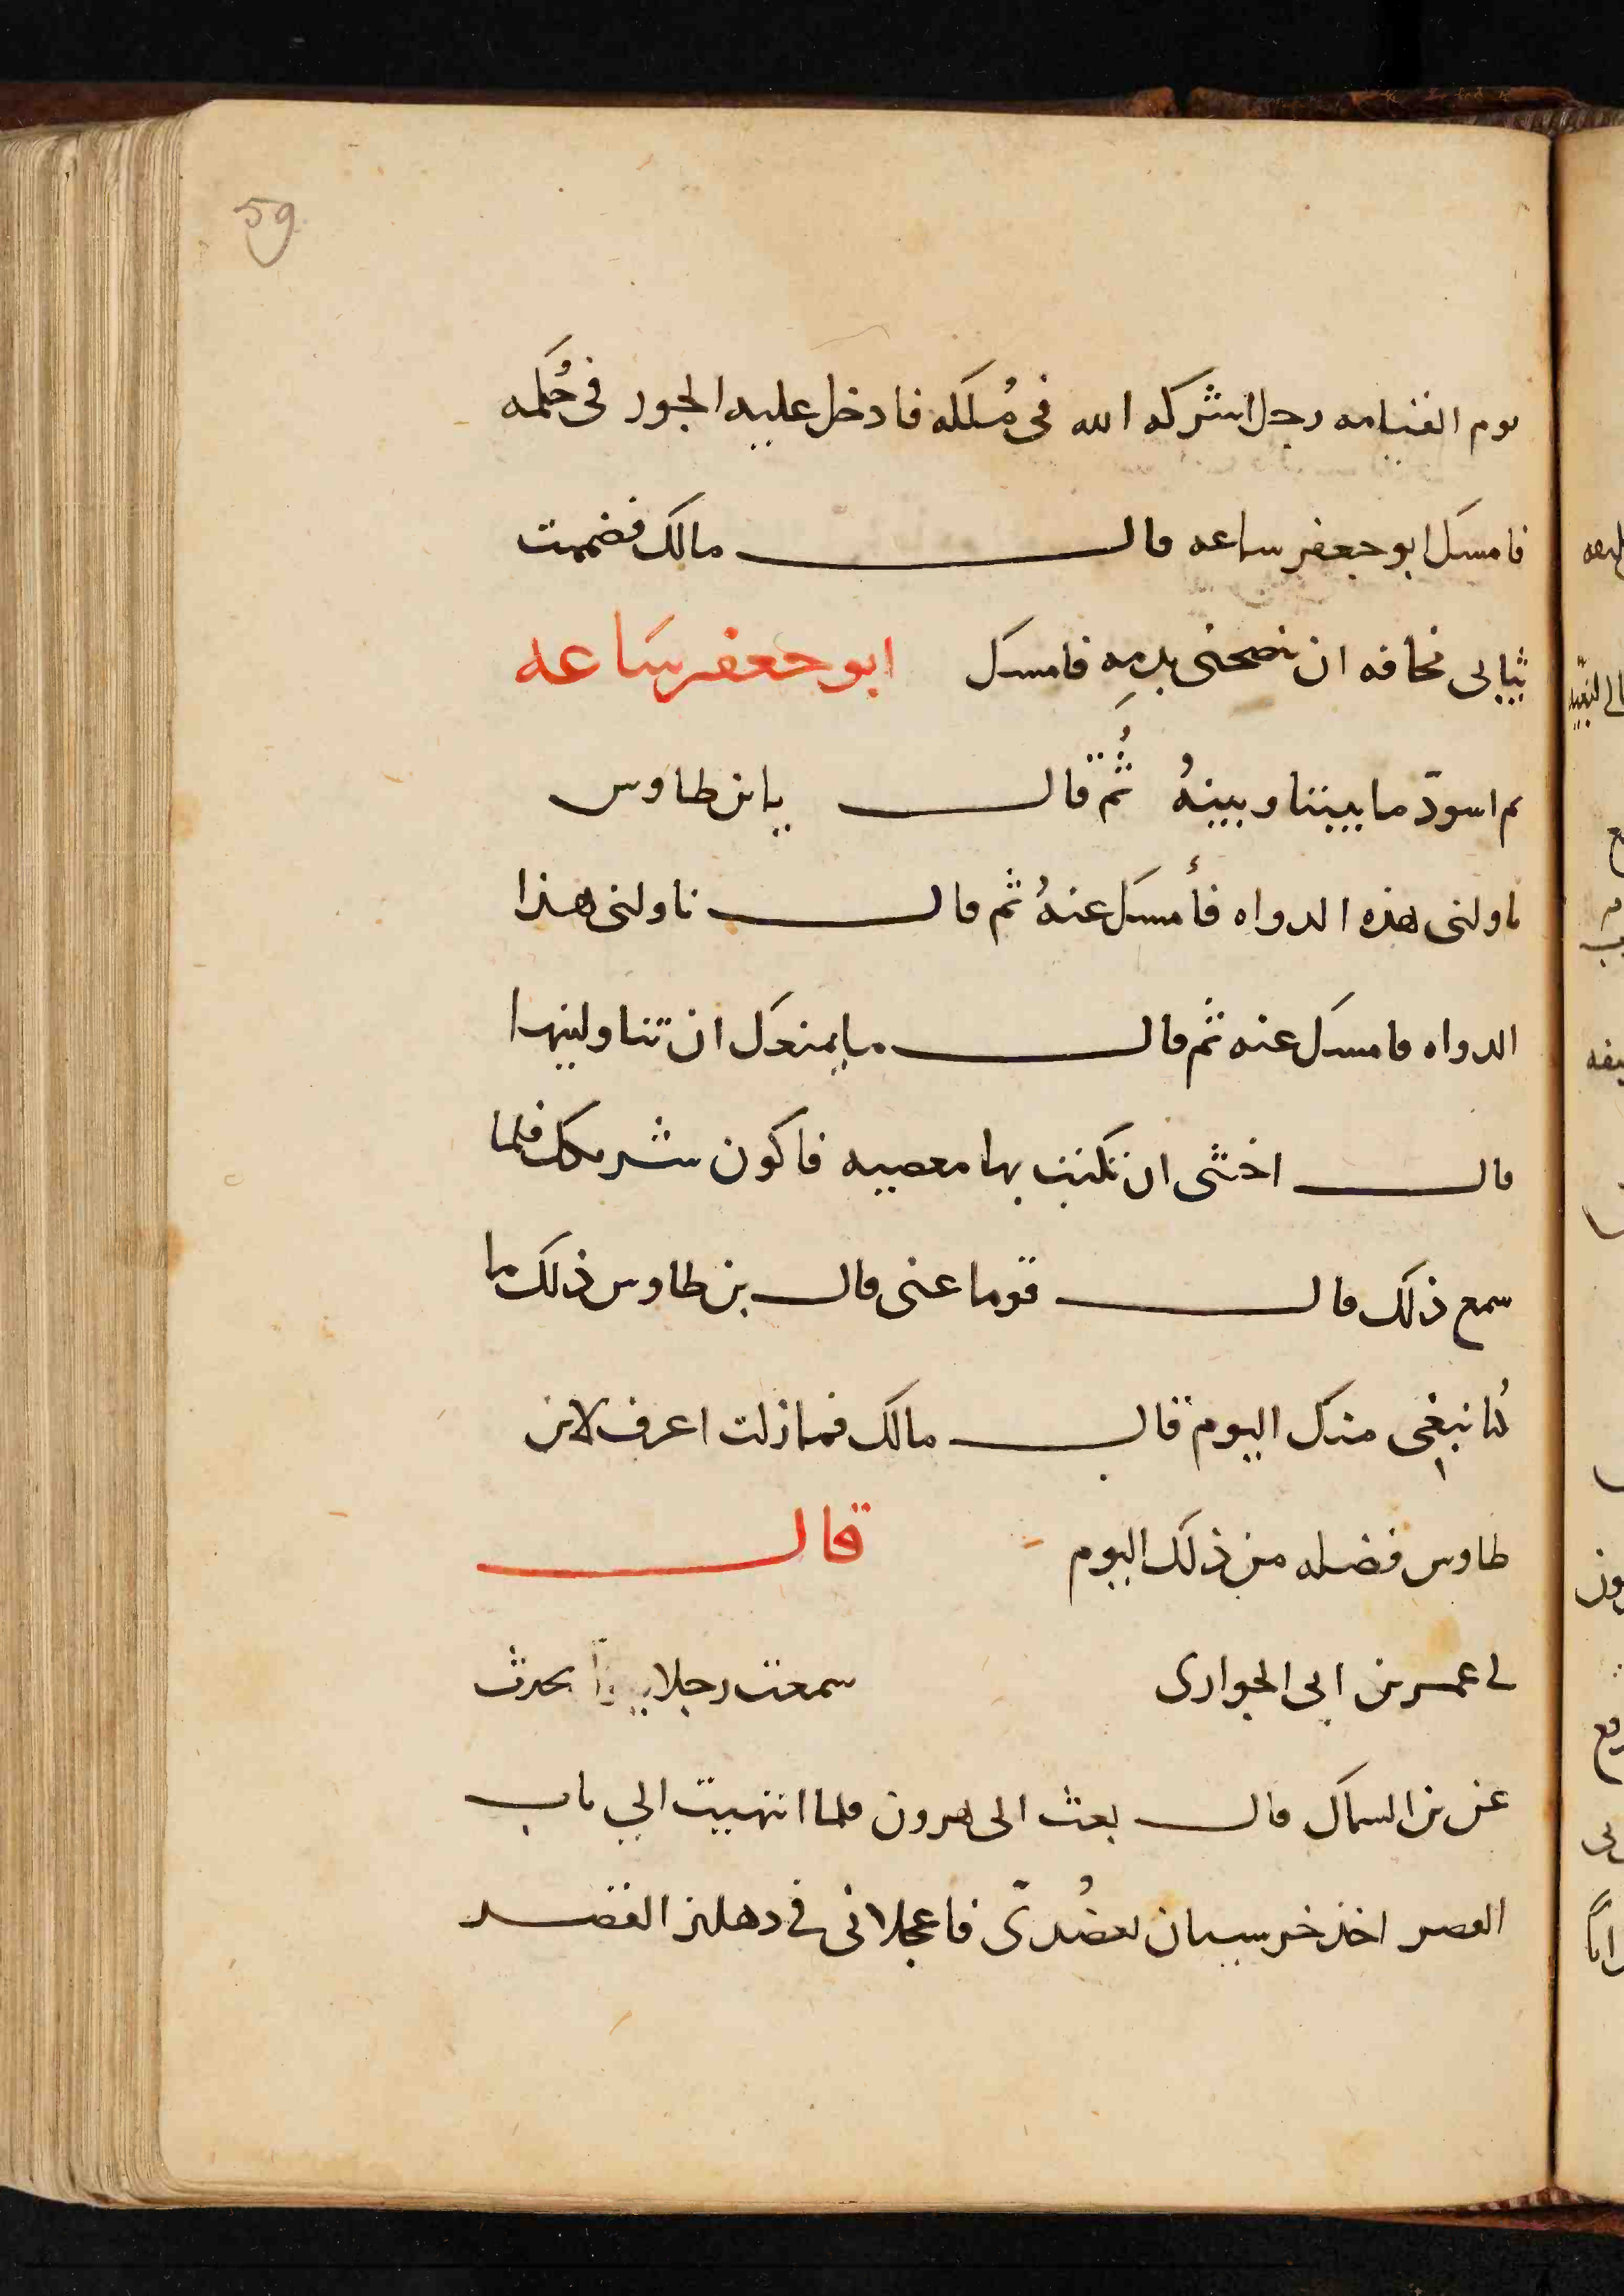 59
يوم القيامه رجل اشركه الله فى مُلكه فادخل عليه الجور فى حُكمه
فامسك ابو جعفر ساعه قال مالك فضممت
ثيابى مخافه ان ينضحنى بدمِه فامسك ابو جعفر سَاعه
ثم اسودّ ما بيننا وبينهُ ثُم قال يا بن طاوس
ناولنى هذه الدواه فأمسك عنهُ ثم قال ناولنى هذا
الدواه فامسك عنه ثم قال ما يمنعك ان تناولينها
قال اخشى ان تكتب بها معصيه فاكون شريكك فلما
سمع ذلك قال قوما عنى قال بن طاوس ذلك ما
كُنا نبغى منك اليوم قال مالك فما زلت اعرف لابن
طاوس فضله من ذلك اليوم قال
لى عمر بن ابى الحوارى سمعت رجلا يحدث
عن بن السماك قال بعث الى هرون فلما انتهيت الي باب
القصر اخذ خرسيان بعضُدىّ فاعجلانى فى دهليز القصر